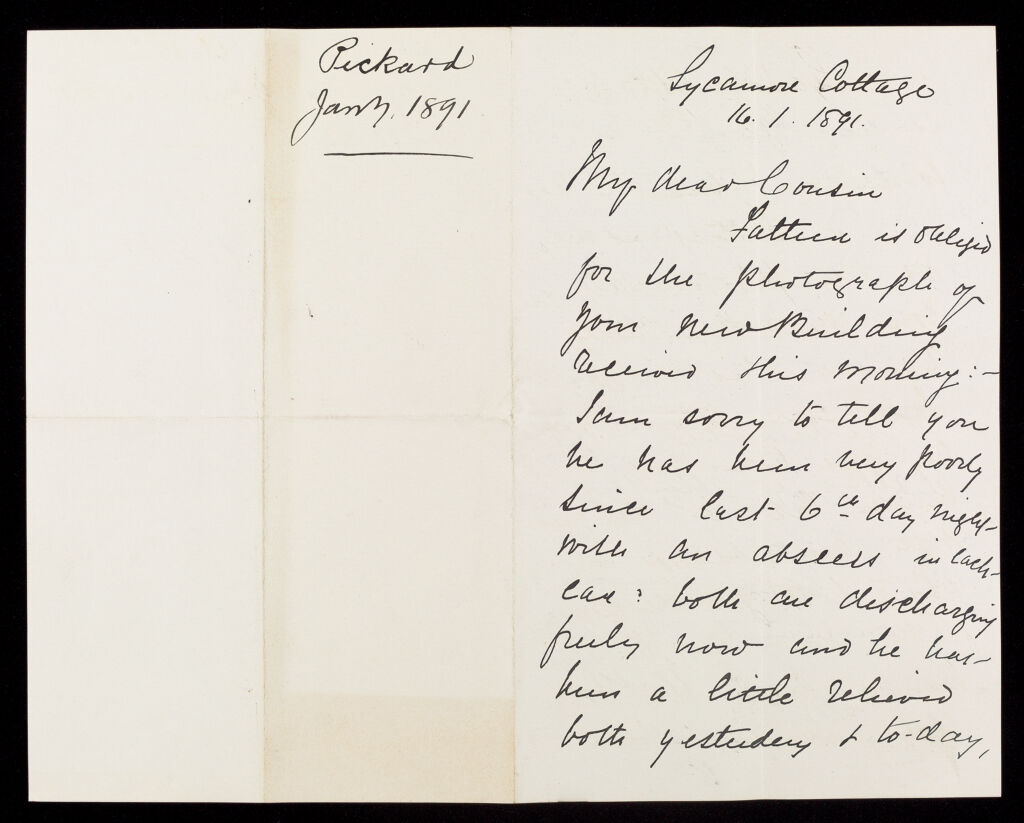 Pickard
Jany. 1891
Sycamore Cottage
16. 1. 1891.
My dear Cousin
Father is obliged
for the photograph of
your new Building
received this morning:-
I am sorry to tell you
he has been very poorly
since last 6th day night
with an abscess in each
ear: both are discharging
freely now and he has
been a little relieved
both yesterday & to-day,